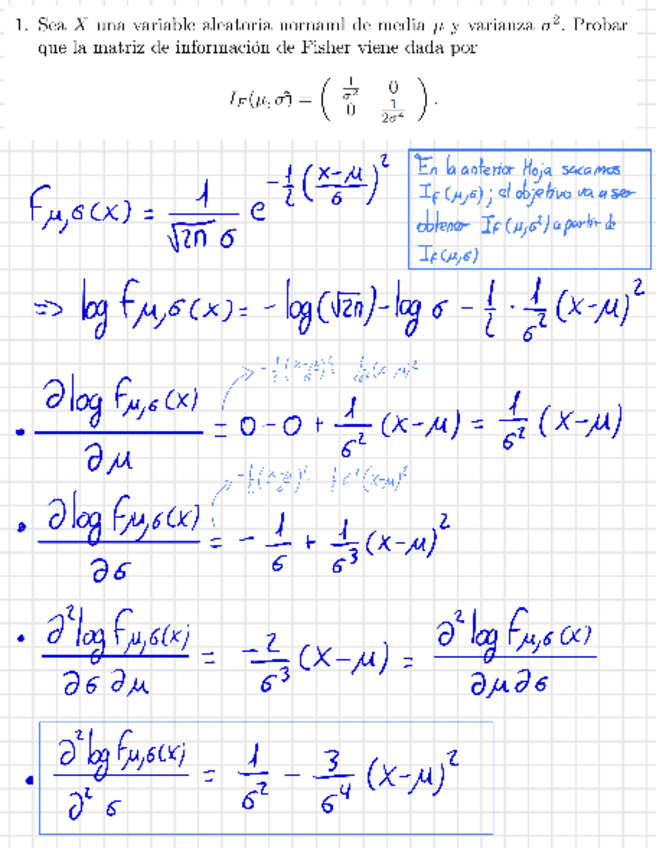 1. Sea X una variable aleatoria nornaml de media μ y varianza σ². Probar
que la matriz de información de Fisher viene dada por
I_F(μ, σ²) = ( 1/σ² 0
0 1/2σ⁴ ).
En la anterior Hoja sacamos
I_F(μ,σ); el objetivo va a ser
obtener I_F(μ,σ²) a partir de
I_F(μ,σ)
f_μ,σ(x) = 1/(√2π σ) e^(-1/2 ((x-μ)/σ)²)
=> log f_μ,σ(x) = - log(√2π) - log σ - 1/2 · 1/σ² (x-μ)²
• ∂log f_μ,σ(x)/∂μ = 0 - 0 + 1/σ² (x-μ) = 1/σ² (x-μ)
• ∂log f_μ,σ(x)/∂σ = - 1/σ + 1/σ³ (x-μ)²
• ∂²log f_μ,σ(x)/∂σ∂μ = -2/σ³ (x-μ) = ∂²log f_μ,σ(x)/∂μ∂σ
• ∂²log f_μ,σ(x)/∂²σ = 1/σ² - 3/σ⁴ (x-μ)²